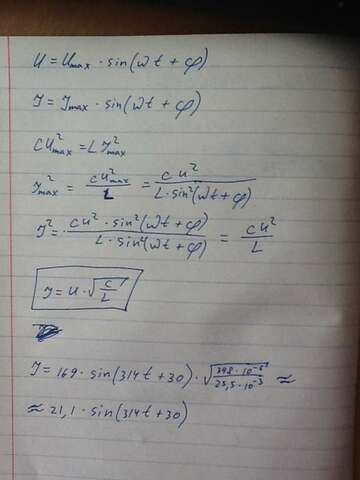 U = Umax · sin(Wt + φ)
J = Jmax · sin(Wt + φ)
CU²max = LJ²max
J²max = CU²max / L = CU² / L · sin²(Wt + φ)
J² = CU² · sin²(Wt + φ) / L · sin²(Wt + φ) = CU² / L
J = U · √(C / L)
J = 169 · sin(314t + 30) · √(398 · 10⁻⁶ / 25,5 · 10⁻³) ≈
≈ 21,1 · sin(314t + 30)